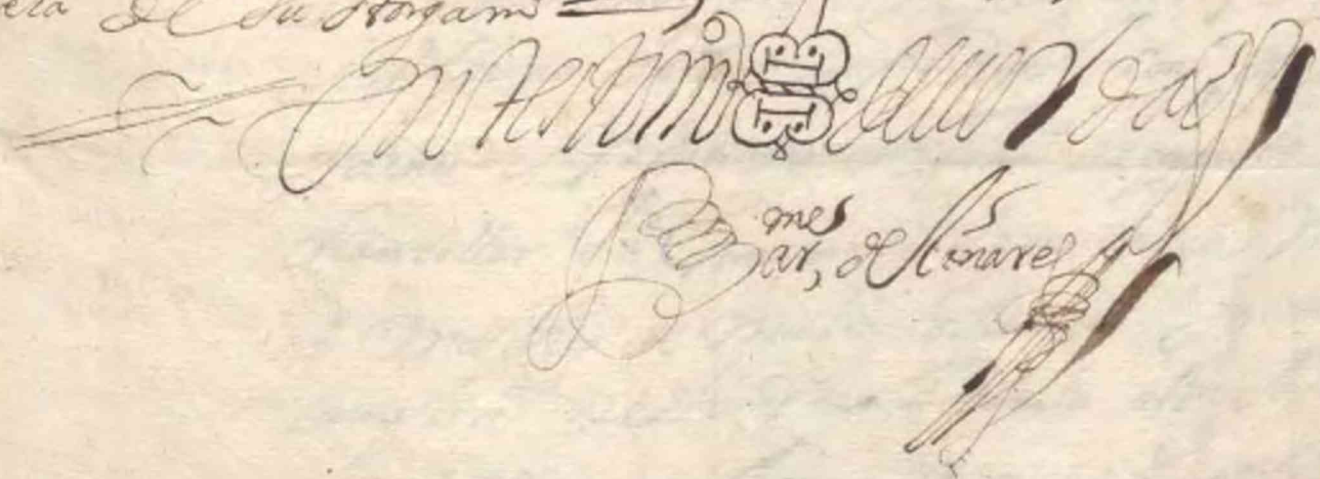 de su otorgami
En testimo de verdad
Barmes de linares